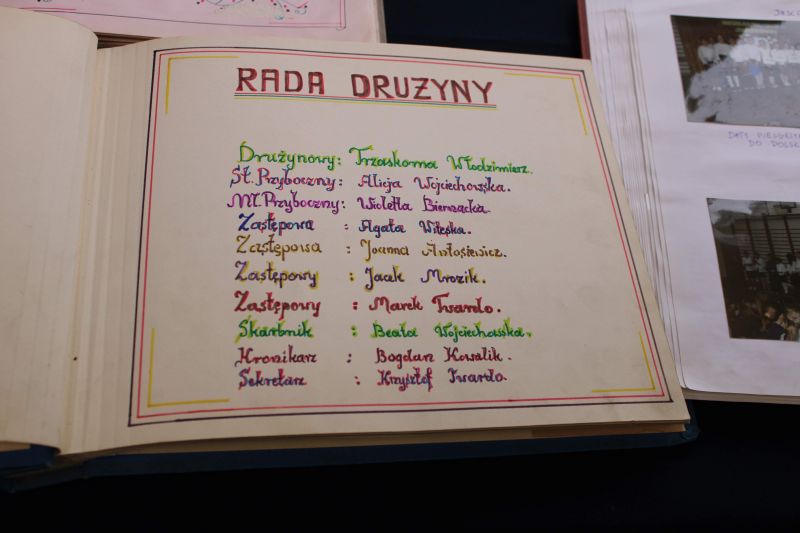 RADA DRUŻYNY
Drużynowy: Trzaskoma Włodzimierz.
St. Przyboczny: Alicja Wojciechowska.
Mł. Przyboczny: Wioletta Biernacka.
Zastępowa : Agata Witeska.
Zastępowa : Joanna Antosiewicz.
Zastępowy : Jacek Mrozik.
Zastępowy : Marek Twardo.
Skarbnik : Beata Wojciechowska.
Kronikarz : Bogdan Kowalik.
Sekretarz : Krzysztof Twardo.
DO POLSK